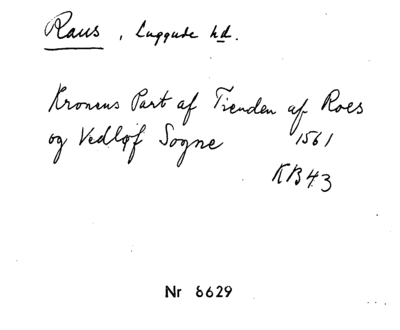 Raus, Luggude hd.
Kronens Part af Tienden af Roes
og Vedløf Sogne 1561
KB43
Nr 8629